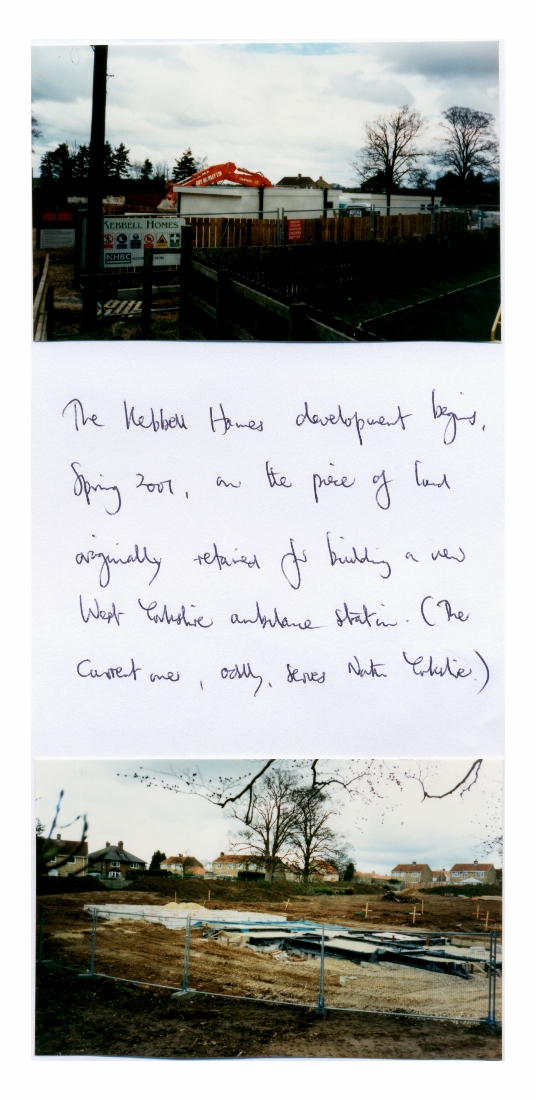 KEBBELL HOMES
NHBC
The Kebbell Homes development begins,
Spring 2001, on the piece of land
originally retained for building a new
West Yorkshire ambulance station. (The
current one, oddly, serves North Yorkshire.)